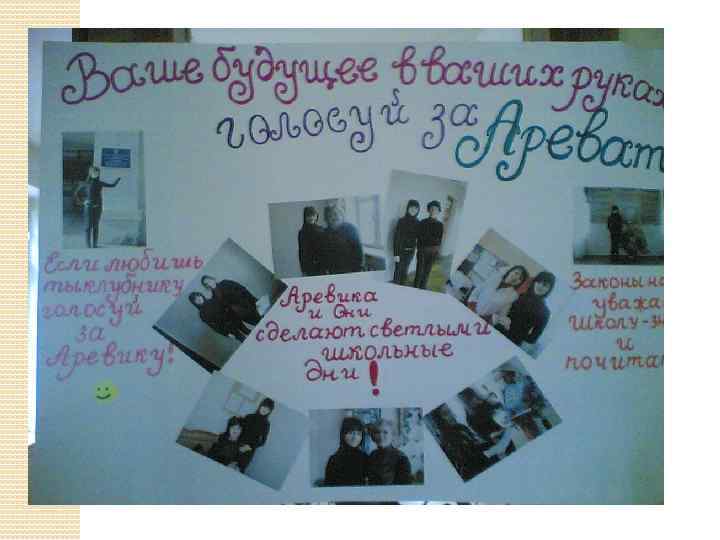 Ваше будущее в ваших рука
голосуй за Ареват
Если любишь
ты клубнику
голосуй
за
Аревику!
Аревика
и они
сделают светлыми
школьные
дни!
Законы
уважа
школу-
и
почита